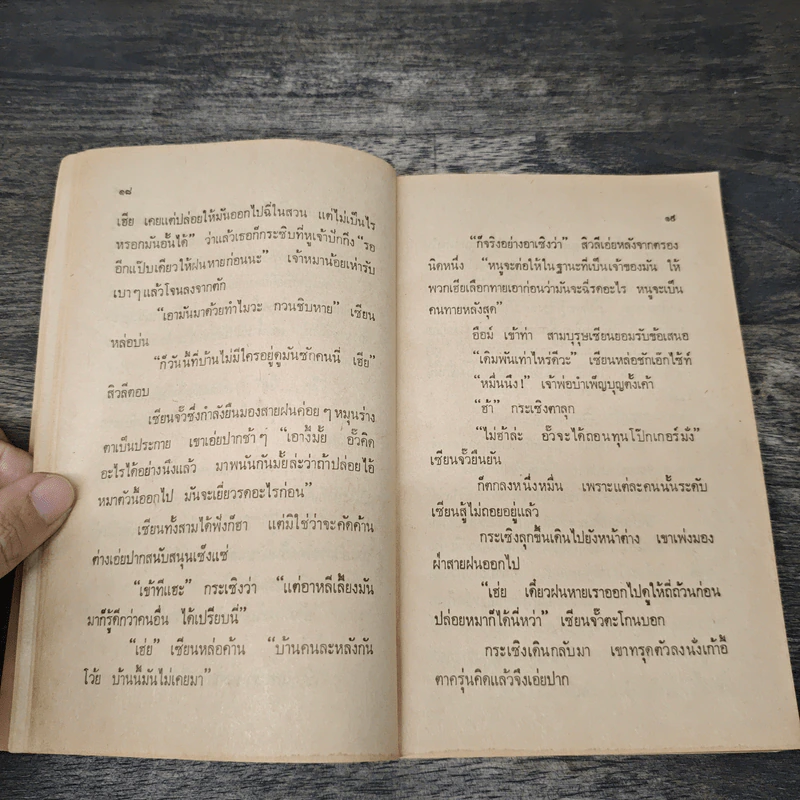 ๑๘
เฮีย เคยแต่ปล่อยให้มันออกไปฉี่ในสวน แต่ไม่เป็นไร
หรอกมันอั้นได้” ว่าแล้วเธอก็กระซิบที่หูเจ้าปักกิ่ง “รอ
อีกแป๊บเดียวให้ฝนหายก่อนนะ” เจ้าหมาน้อยเห่ารับ
เบาๆ แล้วโจนลงจากตัก
“เอามันมาด้วยทำไมวะ กวนชิบหาย” เซียน
หล่อบ่น
“ก็วันนี้ที่บ้านไม่มีใครอยู่ดูมันซักคนนี่ เฮีย”
สิวลีตอบ
เซียนจั๊วซึ่งกำลังยืนมองสายฝนค่อยๆ หมุนร่าง
ตาเป็นประกาย เขาเอ่ยปากช้าๆ “เอางี้มั้ย อั๊วคิด
อะไรได้อย่างนึงแล้ว มาพนันกันมั้ยล่ะว่าถ้าปล่อยไอ้
หมาตัวนี้ออกไป มันจะเยี่ยวรดอะไรก่อน”
เซียนทั้งสามได้ฟังก็ฮา แต่มิใช่ว่าจะคัดค้าน
ต่างเอ่ยปากสนับสนุนเซ็งแซ่
“เข้าทีแฮะ” กระเซิงว่า “แต่อาหลีเลี้ยงมัน
มาก็รู้ดีกว่าคนอื่น ได้เปรียบนี่”
“เฮ่ย” เซียนหล่อค้าน “บ้านคนละหลังกัน
โว้ย บ้านนี้มันไม่เคยมา”
๑๙
“ก็จริงอย่างอาเซิงว่า” สิวลีเอ่ยหลังจากตรอง
นิดหนึ่ง “หนูจะต่อให้ในฐานะที่เป็นเจ้าของมัน ให้
พวกเฮียเลือกทายเอาก่อนว่ามันจะฉี่รดอะไร หนูจะเป็น
คนทายหลังสุด”
อือม์ เข้าท่า สามบุรุษเซียนยอมรับข้อเสนอ
“เดิมพันเท่าไหร่ดีวะ” เซียนหล่อชักเอ๊กไซ้ท์
“หมื่นนึง!” เจ้าพ่อบำเพ็ญบุญตั้งเค้า
“ฮ้า” กระเซิงตาลุก
“ไม่ฮ้าล่ะ อั๊วจะได้ถอนทุนโป๊กเกอร์มั่ง”
เซียนจั๊วยืนยัน
ก็ตกลงหนึ่งหมื่น เพราะแต่ละคนนั้นระดับ
เซียนสู้ไม่ถอยอยู่แล้ว
กระเซิงลุกขึ้นเดินไปยังหน้าต่าง เขาเพ่งมอง
ฝ่าสายฝนออกไป
“เฮ่ย เดี๋ยวฝนหายเราออกไปดูให้ถี่ถ้วนก่อน
ปล่อยหมาก็ได้นี่หว่า” เซียนจั๊วตะโกนบอก
กระเซิงเดินกลับมา เขาทรุดตัวลงนั่งเก้าอี้
ตาครุ่นคิดแล้วจึงเอ่ยปาก